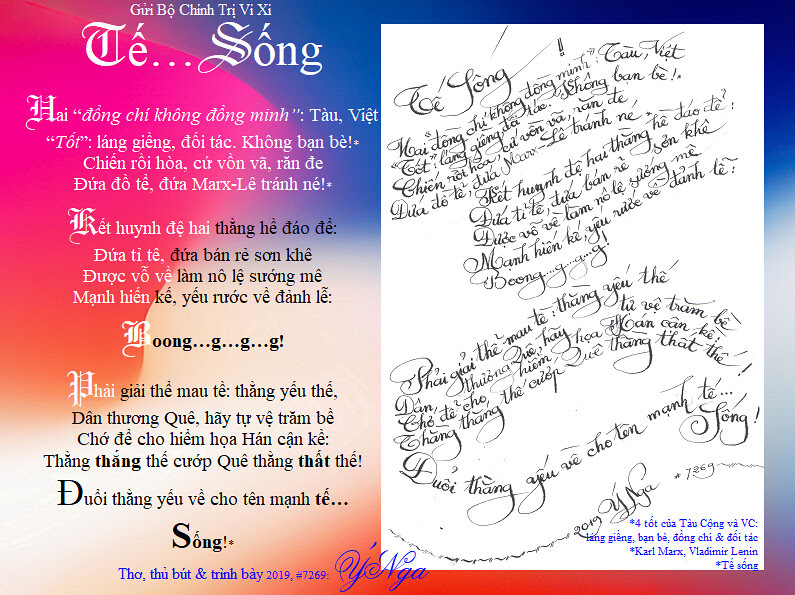 Gửi Bộ Chinh Trị Vi Xi
Tế… Sống
Hai “đồng chí không đồng minh”: Tàu, Việt
“Tốt”: láng giềng, đối tác. Không bạn bè!*
Chiến rồi hòa, cứ vồn vã, răn đe
Đứa đồ tể, đứa Marx-Lê tránh né!*
Kết huynh đệ hai thằng hề đáo để:
Đứa tỉ tê, đứa bán rẻ sơn khê
Được vỗ về làm nô lệ sướng mê
Mạnh hiến kế, yếu rước về đảnh lễ:
Boong…g…g…g!
Phải giải thể mau tề: thằng yếu thế,
Dân thương Quê, hãy tự vệ trăm bề
Chớ để cho hiểm họa Hán cận kề:
Thằng thắng thế cướp Quê thằng thất thế!
Đuổi thằng yếu về cho tên mạnh tế…
Sống!*
Thơ, thủ bút & trình bày 2019, #7269: Ý Nga
Tế Sống !
Hai “đồng chí không đồng minh”: Tàu, Việt
“Tốt”: láng giềng, đối tác. Không bạn bè!*
Chiến rồi hòa, cứ vồn vã, răn đe
Đứa đồ tể, đứa Marx-Lê tránh né*
Kết huynh đệ hai thằng hề đáo để:
Đứa tỉ tê, đứa bán rẻ sơn khê
Được vỗ về làm nô lệ sướng mê
Mạnh hiến kế, yếu rước về đảnh lễ:
Boong...g...g...g!
Phải giải thể mau tề: thằng yếu thế
Dân thương Quê, hãy tự vệ trăm bề
Chớ để cho hiểm họa Hán cận kề:
Thằng thắng thế cướp Quê thằng thất thế!
Đuổi thằng yếu về cho tên mạnh tế...
Sống!
2019 Ý Nga *7269
*4 tốt của Tàu Cộng và VC:
láng giềng, bạn bè, đồng chí & đối tác
*Karl Marx, Vladimir Lenin
*Tế sống